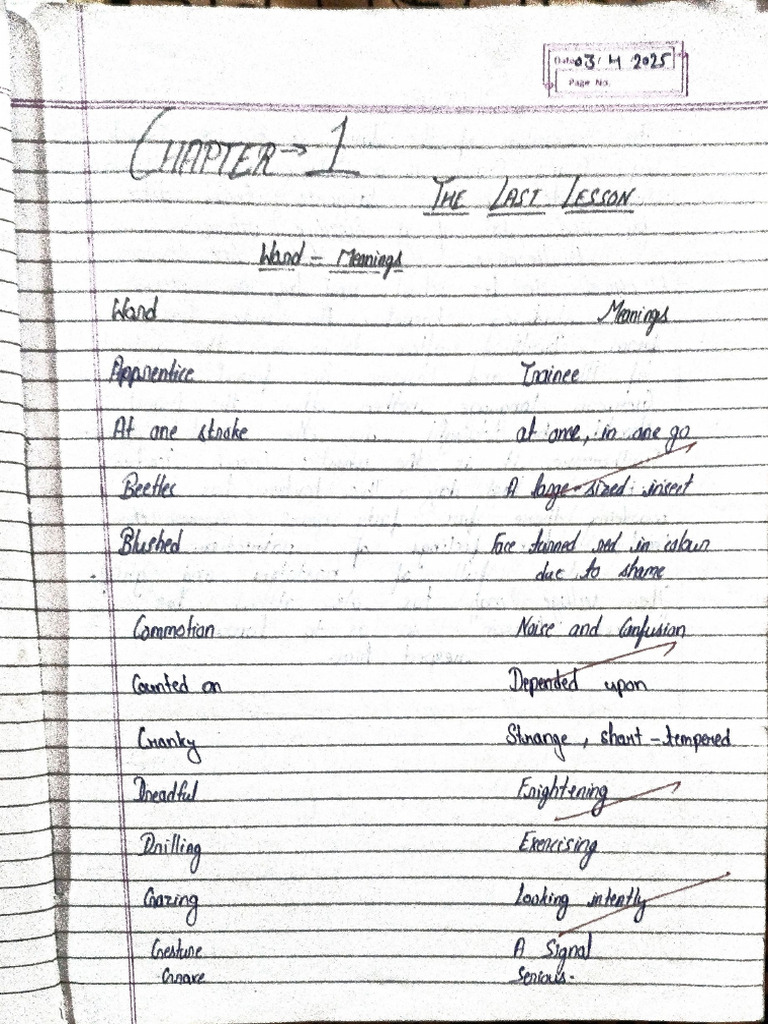 Date 03/4/2025
Page No.
CHAPTER → 1
THE LAST LESSON
Word - Meanings
Word Meanings
Apprentice Trainee
At one stroke at once, in one go
Beetles A large-sized insect
Blushed Face turned red in colour
due to shame
Commotion Noise and Confusion
Counted on Depended upon
Cranky Strange, short-tempered
Dreadful Frightening
Drilling Exercising
Gazing Looking intently
Gesture A Signal
Grave Serious.